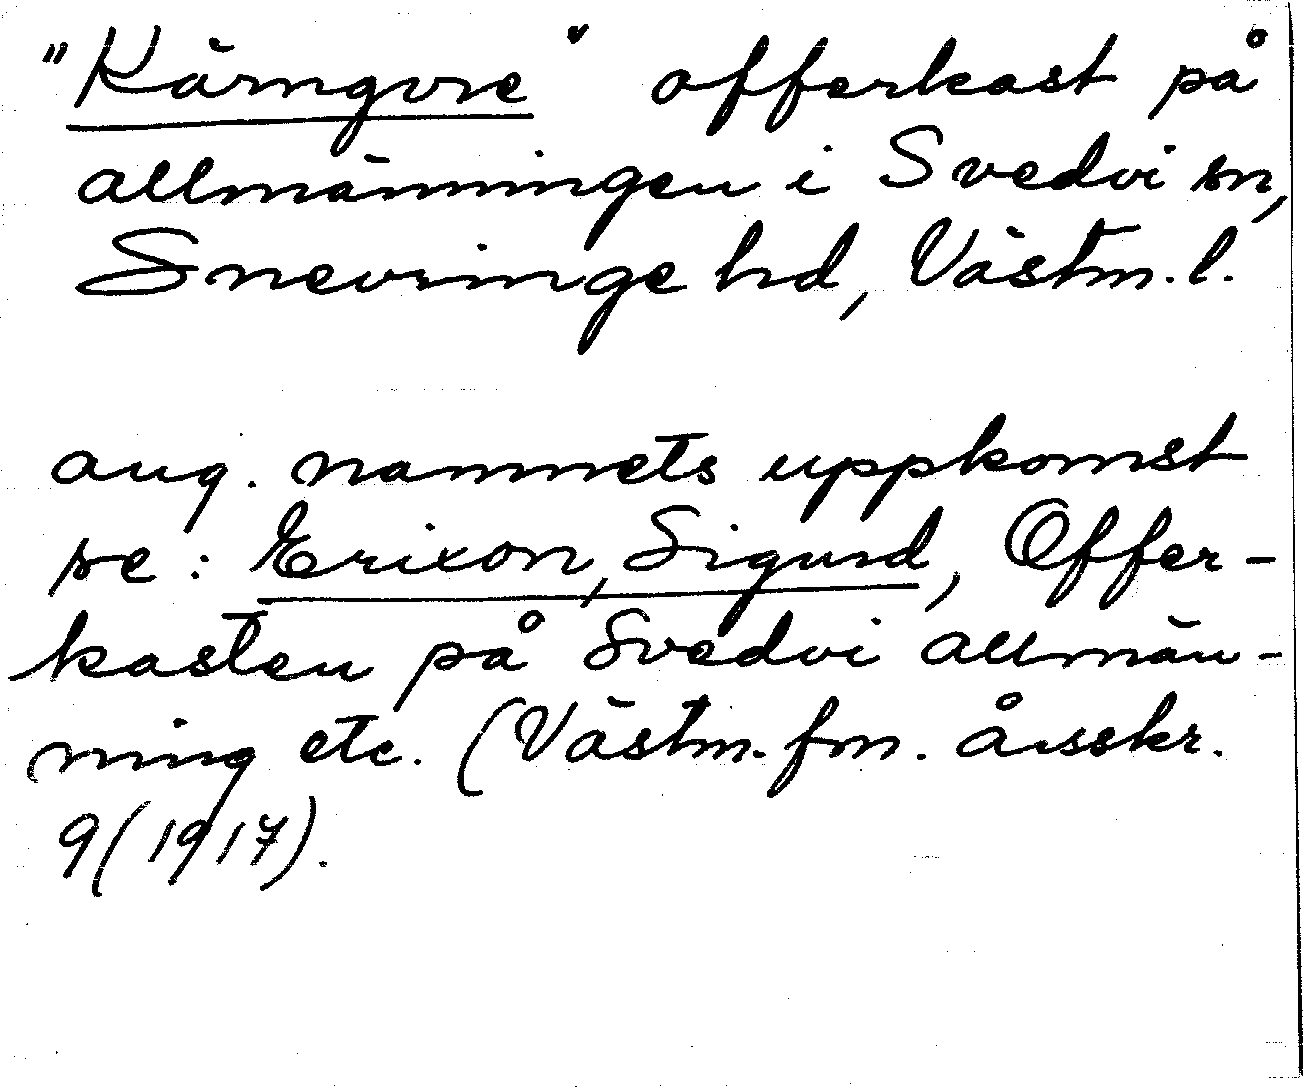 "Kärngvre" offerkast på
allmänningen i Svedvi sn,
Snevringe hd, Västm. l.
ang. namnets uppkomst
se: Erixon, Sigurd, Offer-
kasten på Svedvi allmän-
ning etc. (Västm. fm. årsskr.
9(1917).